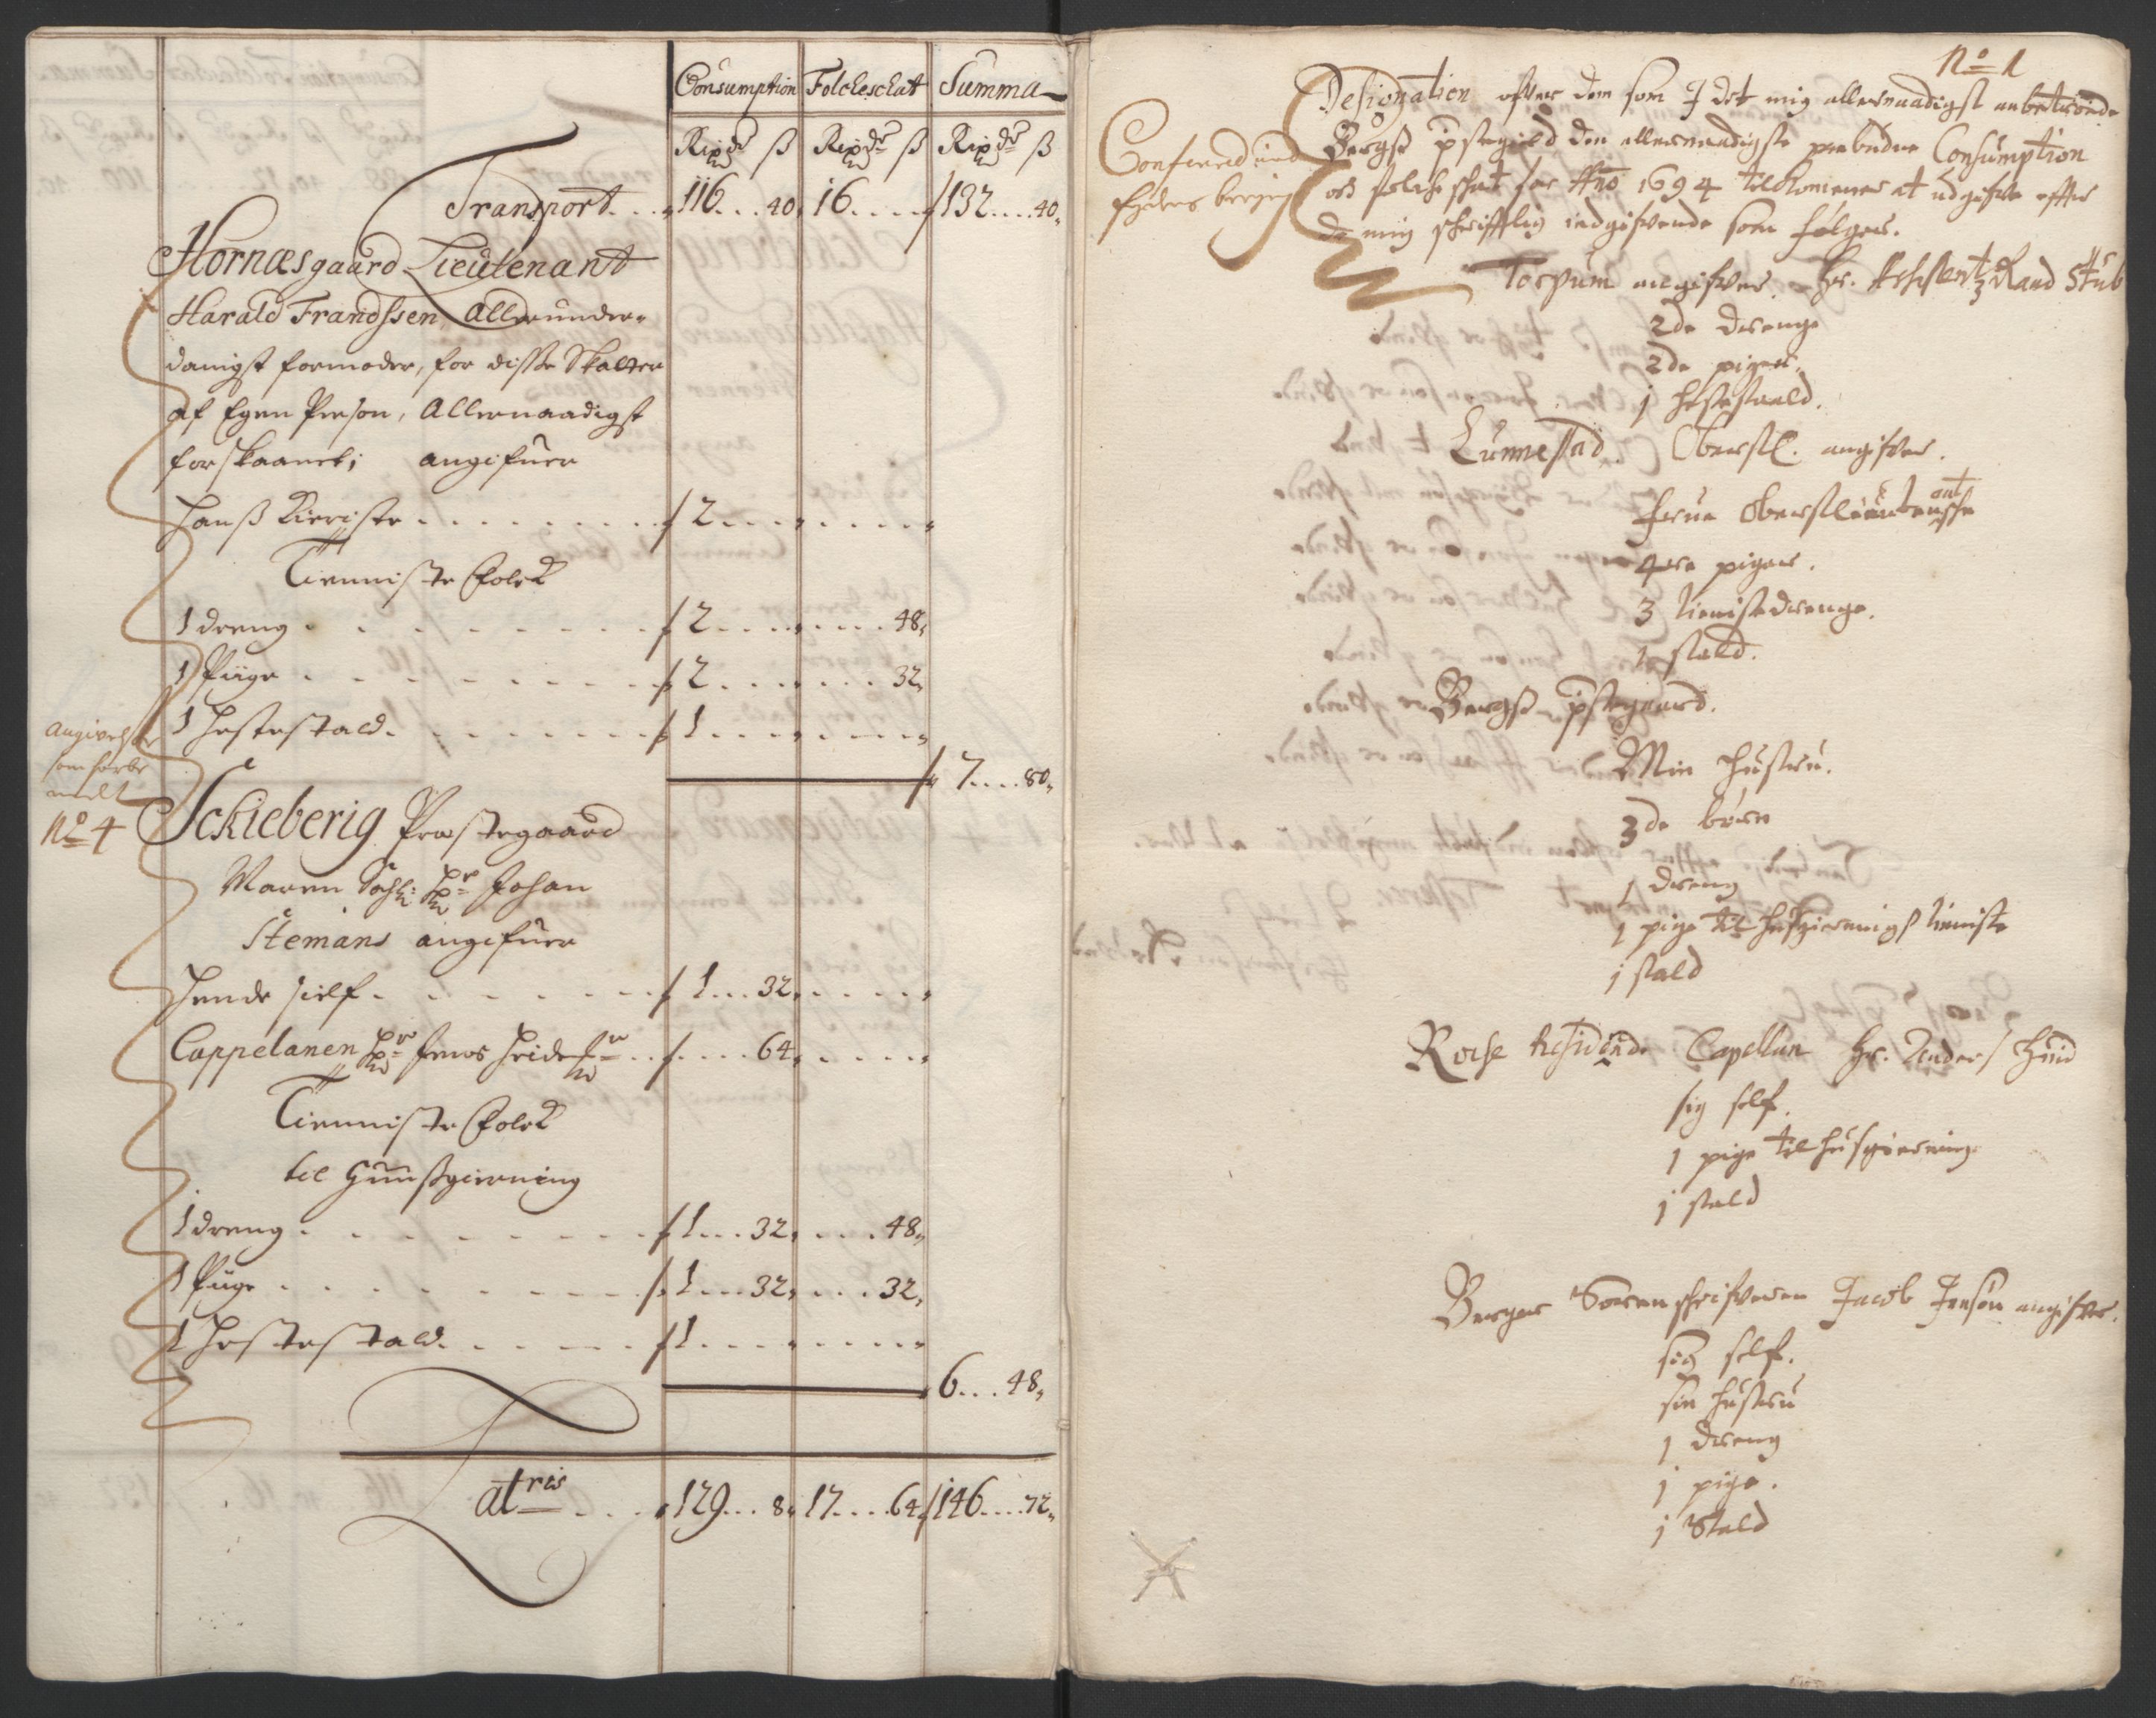 Consumption Folckeschat Summa
Rixdr ß Rixdr ß Rixdr ß
Transport 116 40 16 132 40
Hornæsgaard Lieutenant
Harald Frandssen Allerunder-
danigst formoder, for disse Skatter
af Egen Person, Allernaadigst
forskaanet; angifuer
Hanß Kieriste 2
Tienniste Folck
1 dreng 2 48
1 Piige 2 32
1 Hestestald 1
7 80
angivelse
som forbe
melt
No 4
Sckieberig Præstegaard
Maren Sahl: Hr Johan
Stemans angifuer
Hende sielf 1 32
Cappelanen Hr Jens 64
Tienniste Folck
til Huußgierning
1 dreng 1 32 48
1 Piige 1 32 32
1 Hestestald 1
6 48
Latris 129 8 17 64 146 72
No 1
Designation ofver dem som I det mig allernaadigst anbetroede
Bergs pstegield den allernaadigste paabudne Consumption
och folcke schat for Ao 1694 tilkommer at udgifve efter
de mig schrifftlig indgifvende som følger.
Torpum angifver Hr. Assistentz Raad Stub
2de drenge
2de piger
1 hestestald.
Lunnestad. Oberstl. angifver.
Frue Oberstleutenantsche
4re piger.
3 tienistedrenge.
1 stald.
Bergs pstegaard.
Min Hustru.
3de børn
1 dreng
1 pige til Husgiernings tieniste
1 stald
Residerende Capellan Hr. Anders Huid
sig self.
1 pige til husgierning
1 stald
Berger Sorenschrifveren Jacob Jensøn angifver.
sig self.
sin hustru
1 dreng
1 pige.
1 Stald